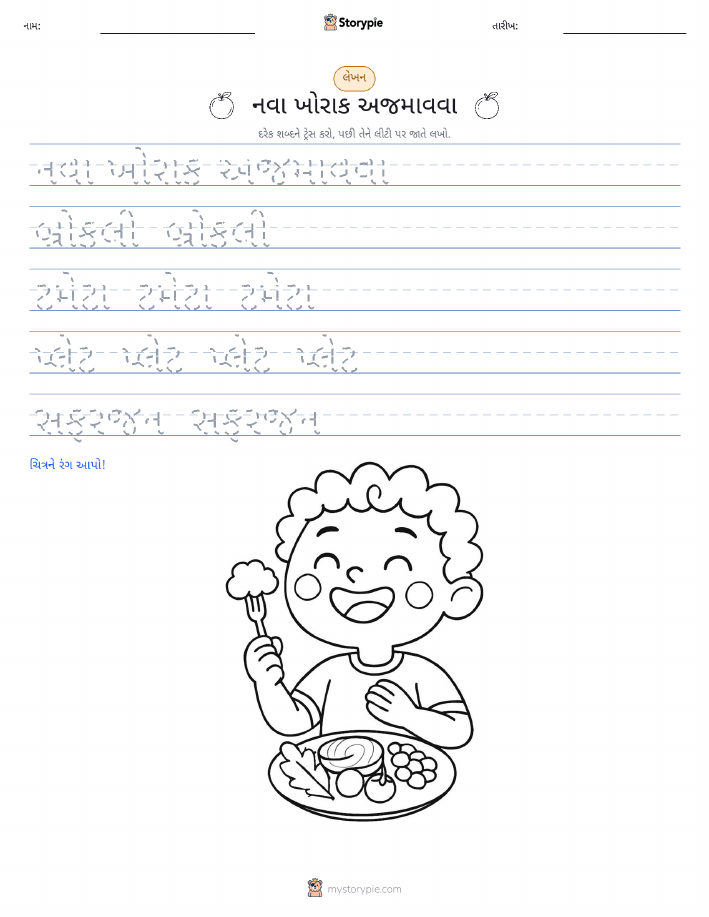 નામ:
Storypie
તારીખ:
લેખન
નવા ખોરાક અજમાવવા
દરેક શબ્દને ટ્રેસ કરો, પછી તેને લીટી પર જાતે લખો.
નવા ખોરાક અજમાવવા
બ્રોકલી બ્રોકલી
ટામેટા ટામેટા ટામેટા
પ્લેટ પ્લેટ પ્લેટ પ્લેટ
સફરજન સફરજન
ચિત્રને રંગ આપો!
mystorypie.com